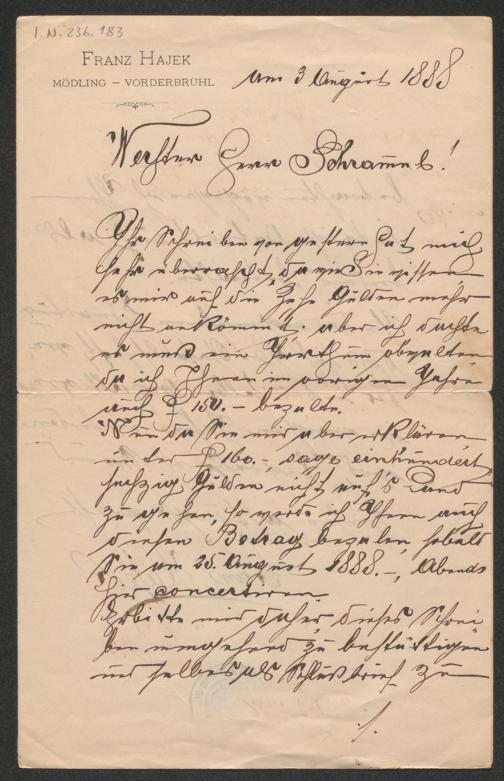 I.N. 236.183
FRANZ HAJEK
MÖDLING – VORDERBRÜHL
am 3 August 1888
Werther Herr Schrammel!
Ihr Schreiben von gestern hat mich
sehr überrascht, da wie Sie wissen
es mir auf die Zehn Gulden mehr
nicht ankömmt, aber ich dachte
es muß ein Irrthum obwalten
da ich Ihnen im vorigen Jahre
auch f 150.– bezalte.
Nun da Sie mir aber erklären
unter f 160.–, sage einhundert
sechzig Gulden nicht auf's Land
zu gehen, so werde ich Ihnen auch
diesen Betrag bezalen, sobald
Sie am 25. August 1888.–, Abends
hier concertiren.
Erbitte mir daher dieses Schrei
ben umgehend zu bestättigen
und selbes als Schlußbrief zu
./.